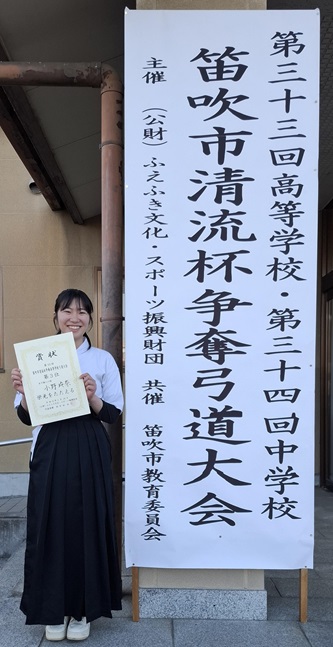 第三十三回高等学校・第三十四回中学校
笛吹市清流杯争奪弓道大会
主催 (公財)ふえふき文化・スポーツ振興財団 共催 笛吹市教育委員会
賞状